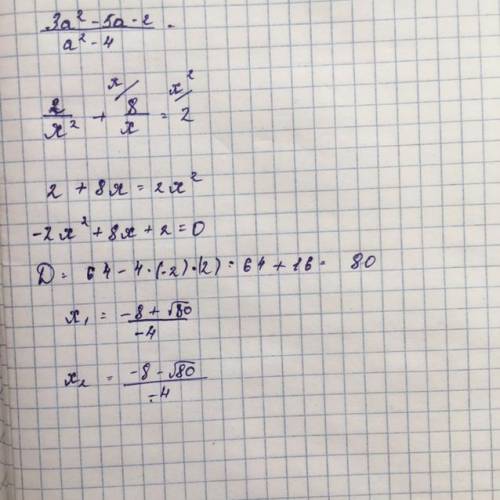 3a² - 5a - 2
a² - 4
x/ x²/
2/x² + 8/x = 2
2 + 8x = 2x²
-2x² + 8x + 2 = 0
D = 64 - 4·(-2)·(2) = 64 + 16 = 80
x₁ = -8 + √80 / -4
x₂ = -8 - √80 / -4